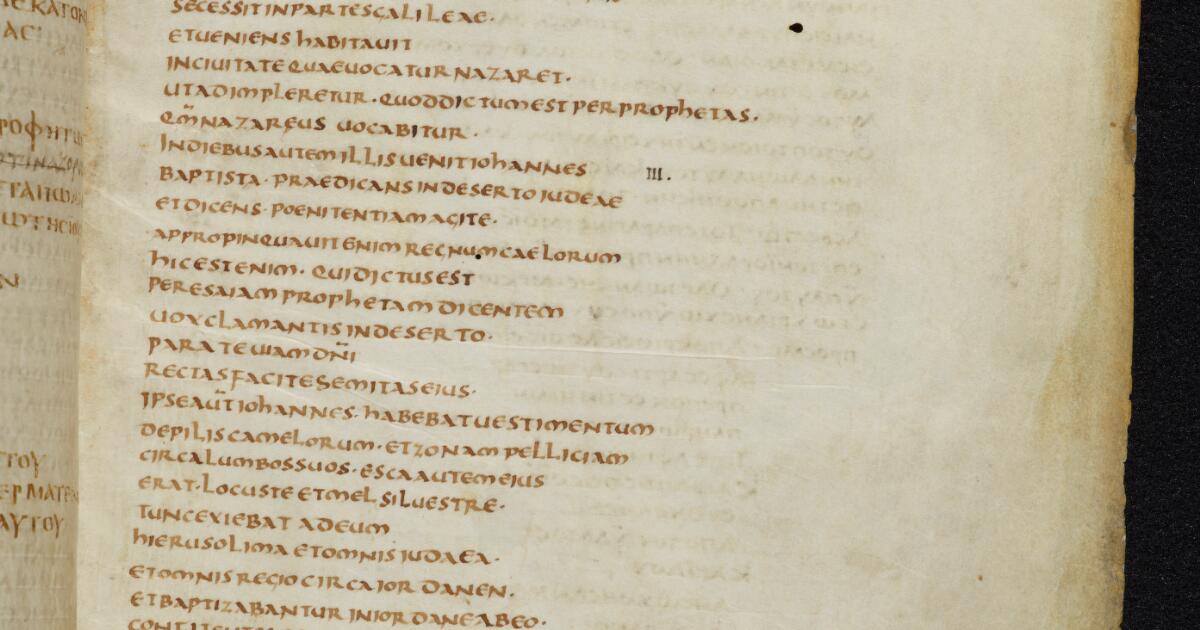 SECESSITINPARTESGALILEAE·
ETUENIENS hABITAUIT
INCIUITATEQUAEUOCATURNAZARET·
UTADIMPLERETUR·QUODDICTUMESTPERPROPhETAS·
QM̅NAZAREUS UOCABITUR·
INDIEBUSAUTEMILLISUENITIOhANNES III.
BAPTISTA·PRAEDICANSINDESERTOIUDEAE
ETDICENS·POENITENTIAMAGITE·
APPROPINQUAUITENIMREGNUMCAELORUM
hICESTENIM·QUIDICTUSEST
PERESAIAMPROPhETAMDICENTEM
UOXCLAMANTISINDESERTO·
PARATEUIAMDN̅I
RECTASFACITESEMITASEIUS·
IPSEAUT̅IOhANNES·hABEBATUESTIMENTUM
DEPILISCAMELORUM·ETZONAMPELLICIAM
CIRCALUMBOSSUOS·ESCAAUTEMEIUS
ERAT·LOCUSTEETMELSILUESTRE·
TUNCEXIEBAT ADEUM
hIERUSOLIMAETOMNISIUDAEA·
ETOMNISREGIOCIRCAIORDANEN·
ETBAPTIZABANTURINIORDANEABEO·